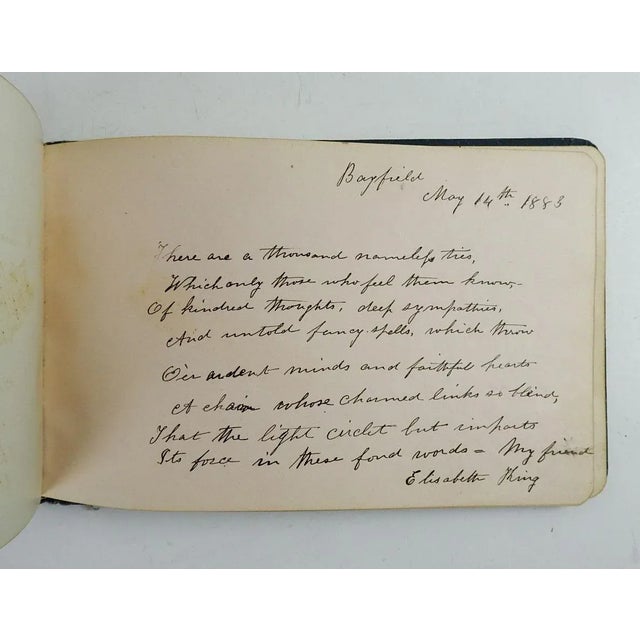 Bayfield
May 14th 1883
There are a thousand nameless ties,
Which only those who feel them know,-
Of kindred thoughts, deep sympathies,
And untold fancy spells, which throw
O'er ardent minds and faithful hearts
A chain whose charmed links so blend,
That the light circlet but imparts
Its force in these fond words = My friend
Elisabeth King